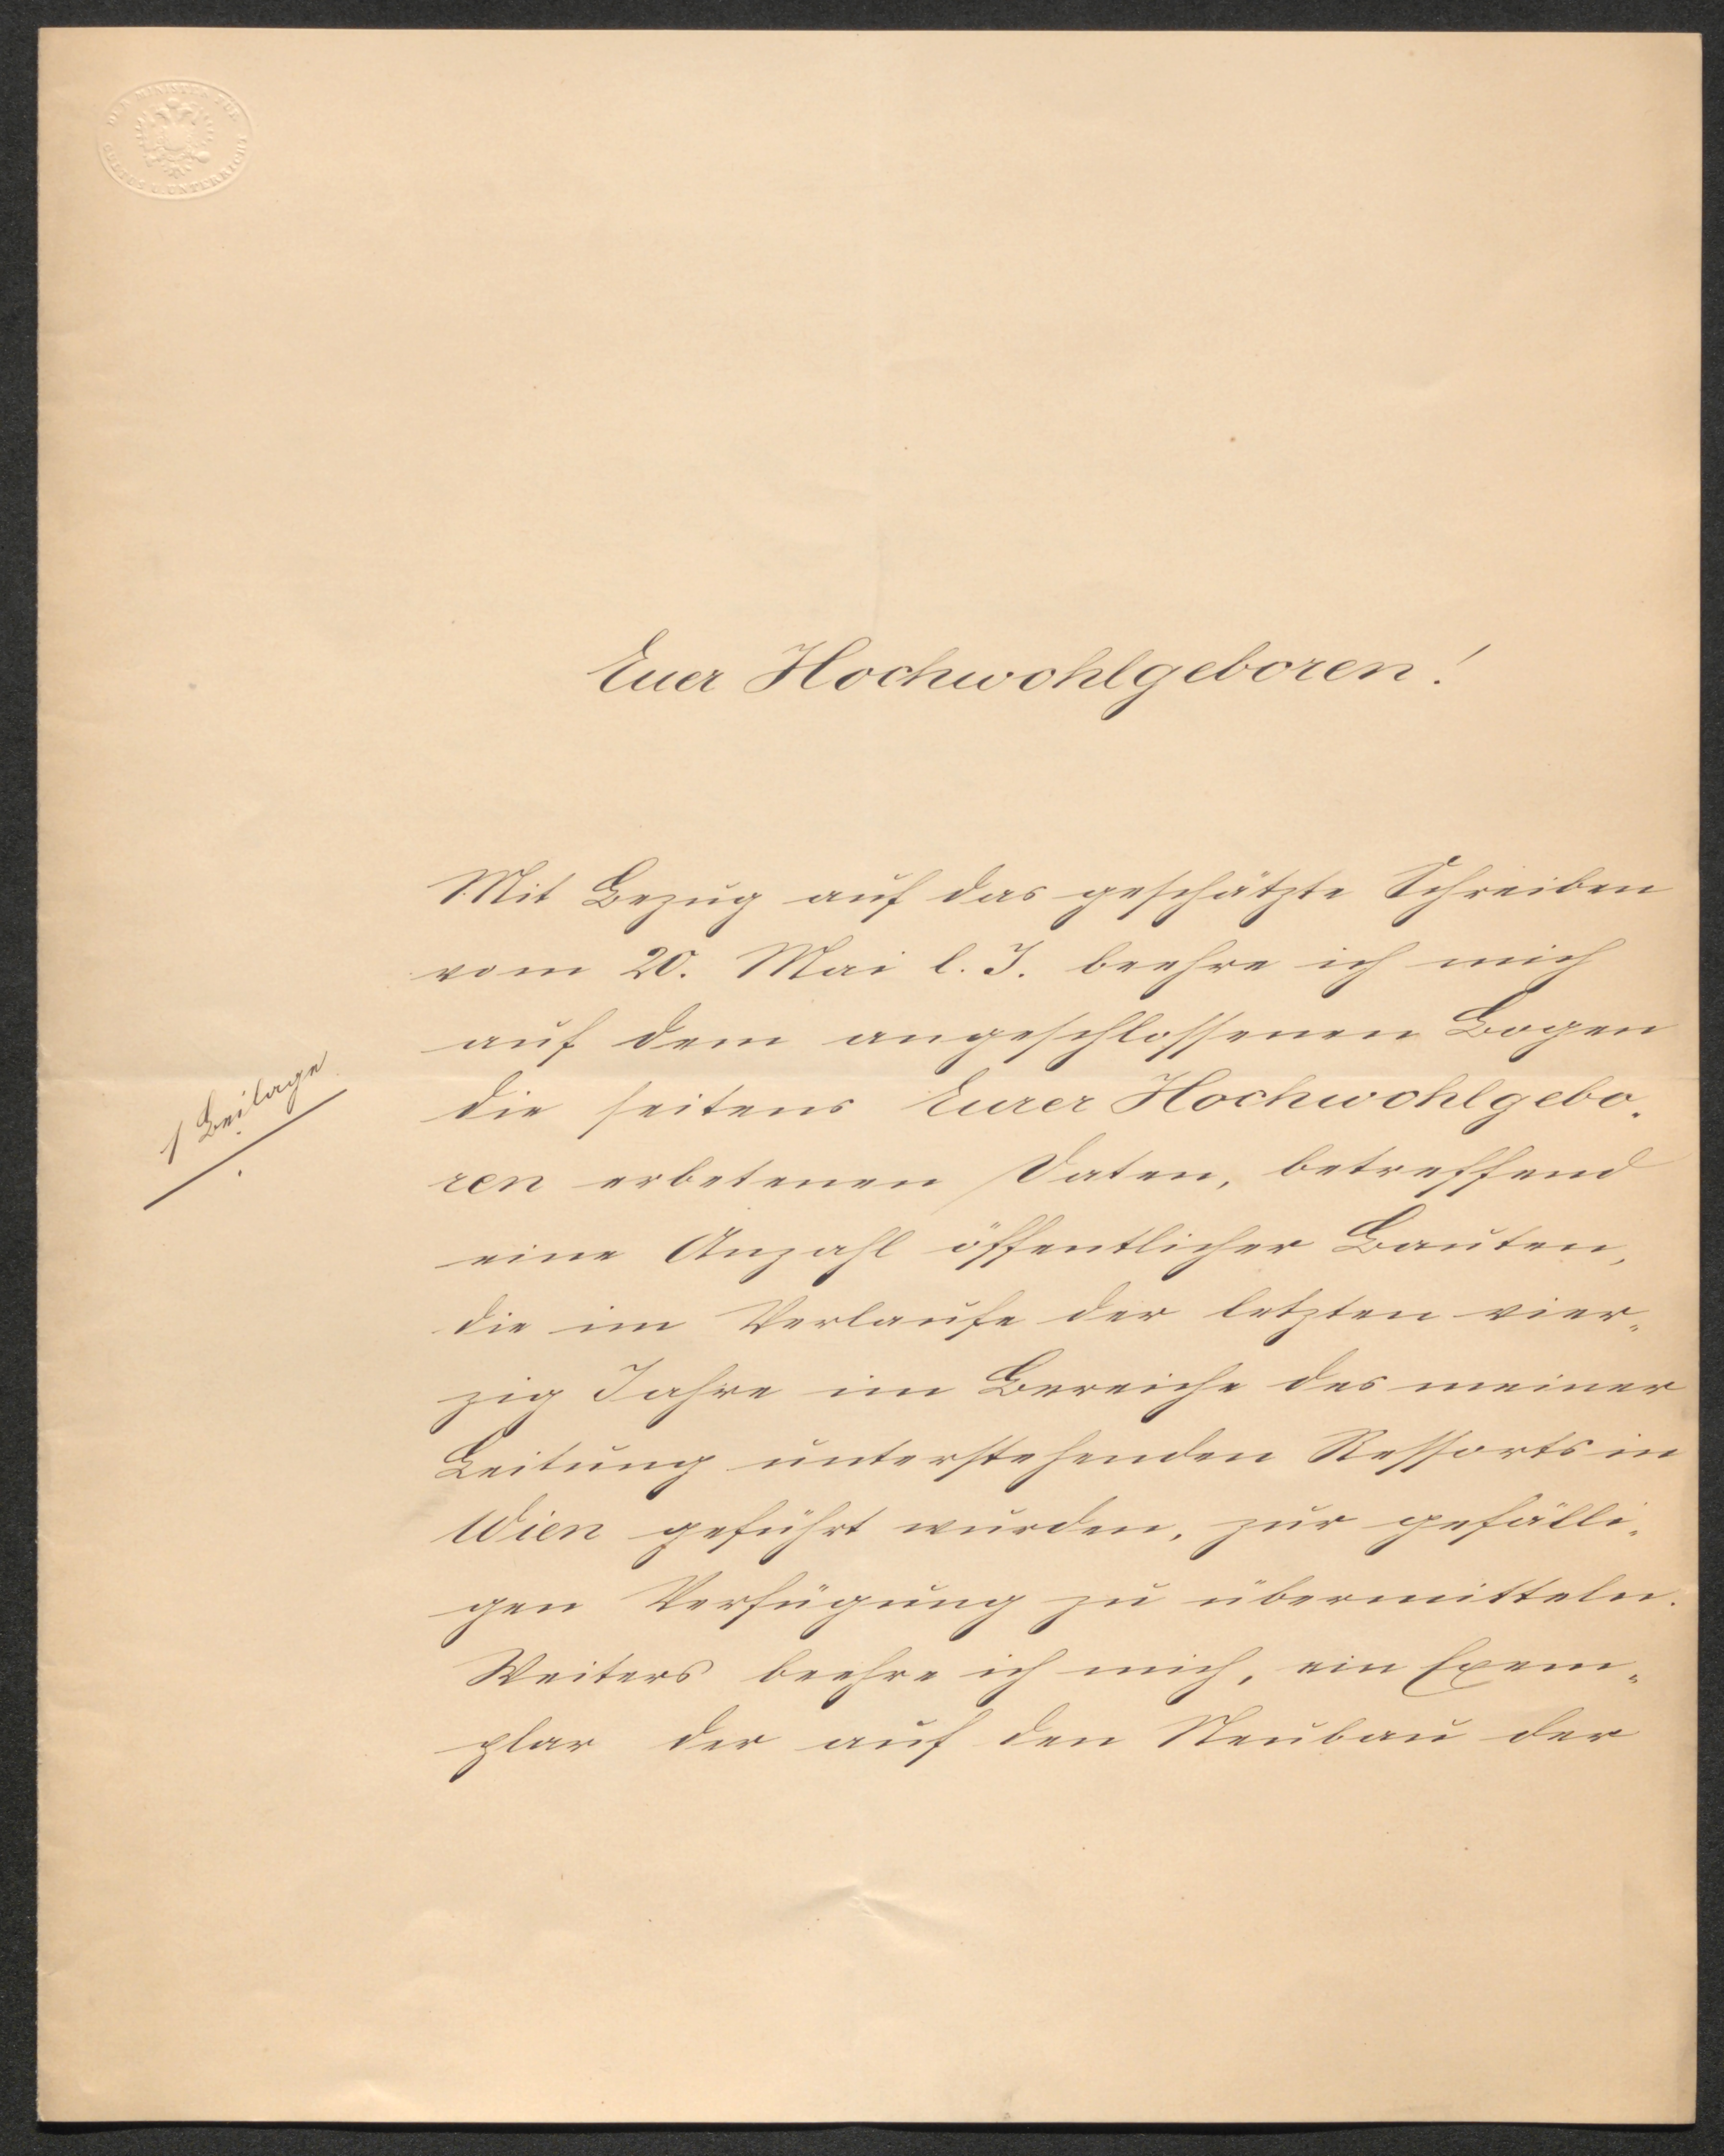 DER MINISTER FÜR CULTUS U. UNTERRICHT
Euer Hochwohlgeboren!
Mit Bezug auf das geschätzte Schreiben
vom 20. Mai l. J. beehre ich mich
auf dem angeschlossenen Bogen
1 Beilage
die seitens Eurer Hochwohlgebo-
ren erbetenen Daten, betreffend
eine Anzahl öffentlicher Bauten,
die im Verlaufe der letzten vier-
zig Jahre im Bereiche des meiner
Leitung unterstehenden Ressorts in
Wien geführt wurden, zur gefälli-
gen Verfügung zu übermitteln.
Weiters beehre ich mich, ein Exem-
plar der auf den Neubau der